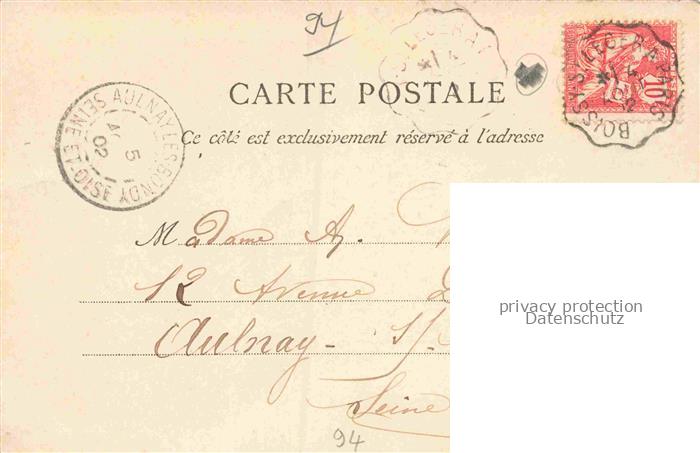 94
CARTE POSTALE
Ce côté est exclusivement réservé à l'adresse
AULNAY-LES-BONDY
5
02
SEINE ET OISE
BOISSY-S-LEGER A PARIS
10
Madame A.
12 Avenue
Aulnay- s/-
Seine
94
privacy protection
Datenschutz